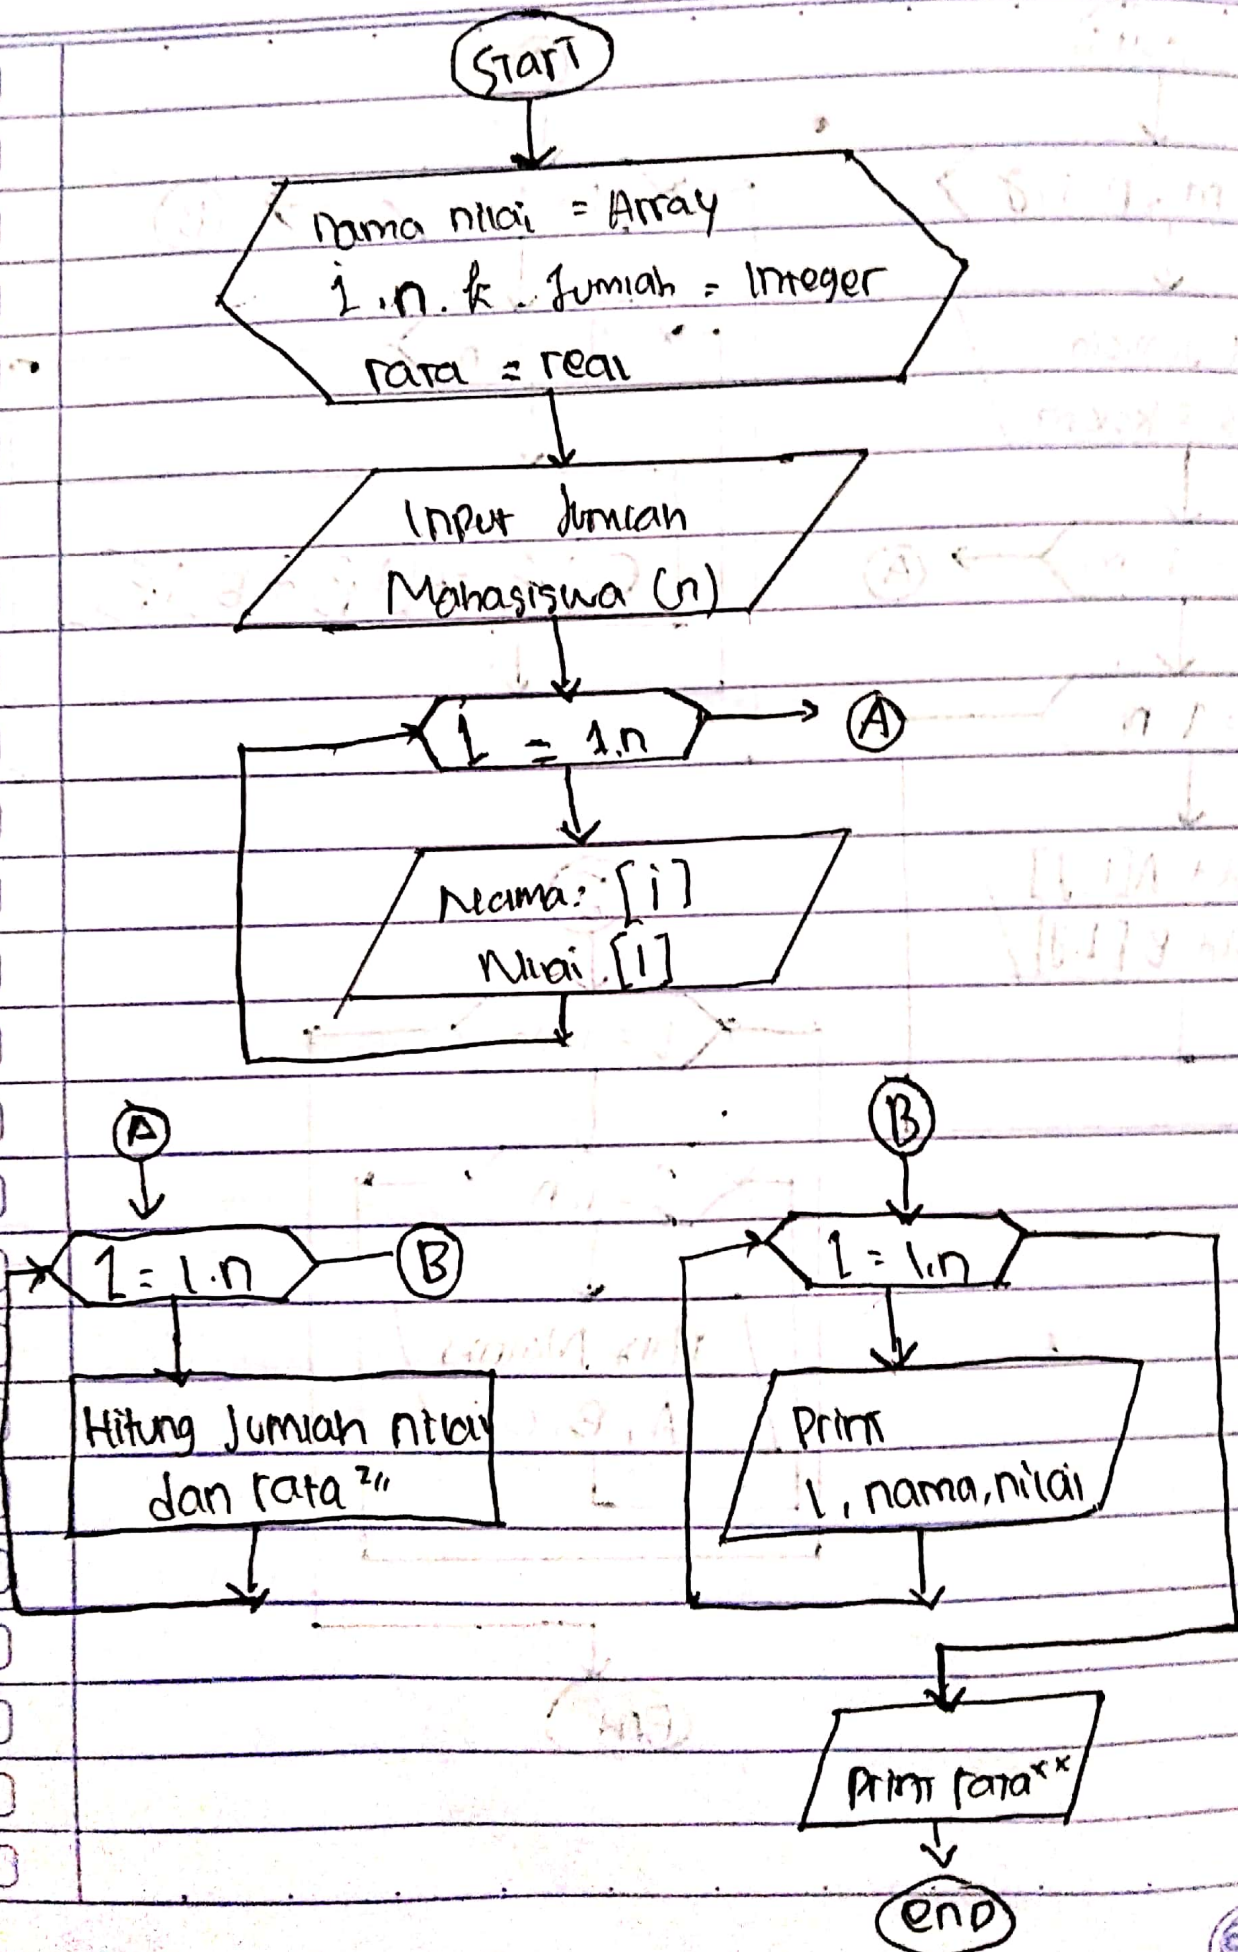 START
nama nilai = Array
i . n . k . Jumlah = Integer
rata = real
Input Jumlah
Mahasiswa (n)
i = 1.n
A
Nama: [i]
Nilai . [i]
A
B
i = 1.n
B
i = 1.n
Hitung Jumlah nilai
dan rata ²"
Print
i, nama, nilai
Print rata ˣˣ
end